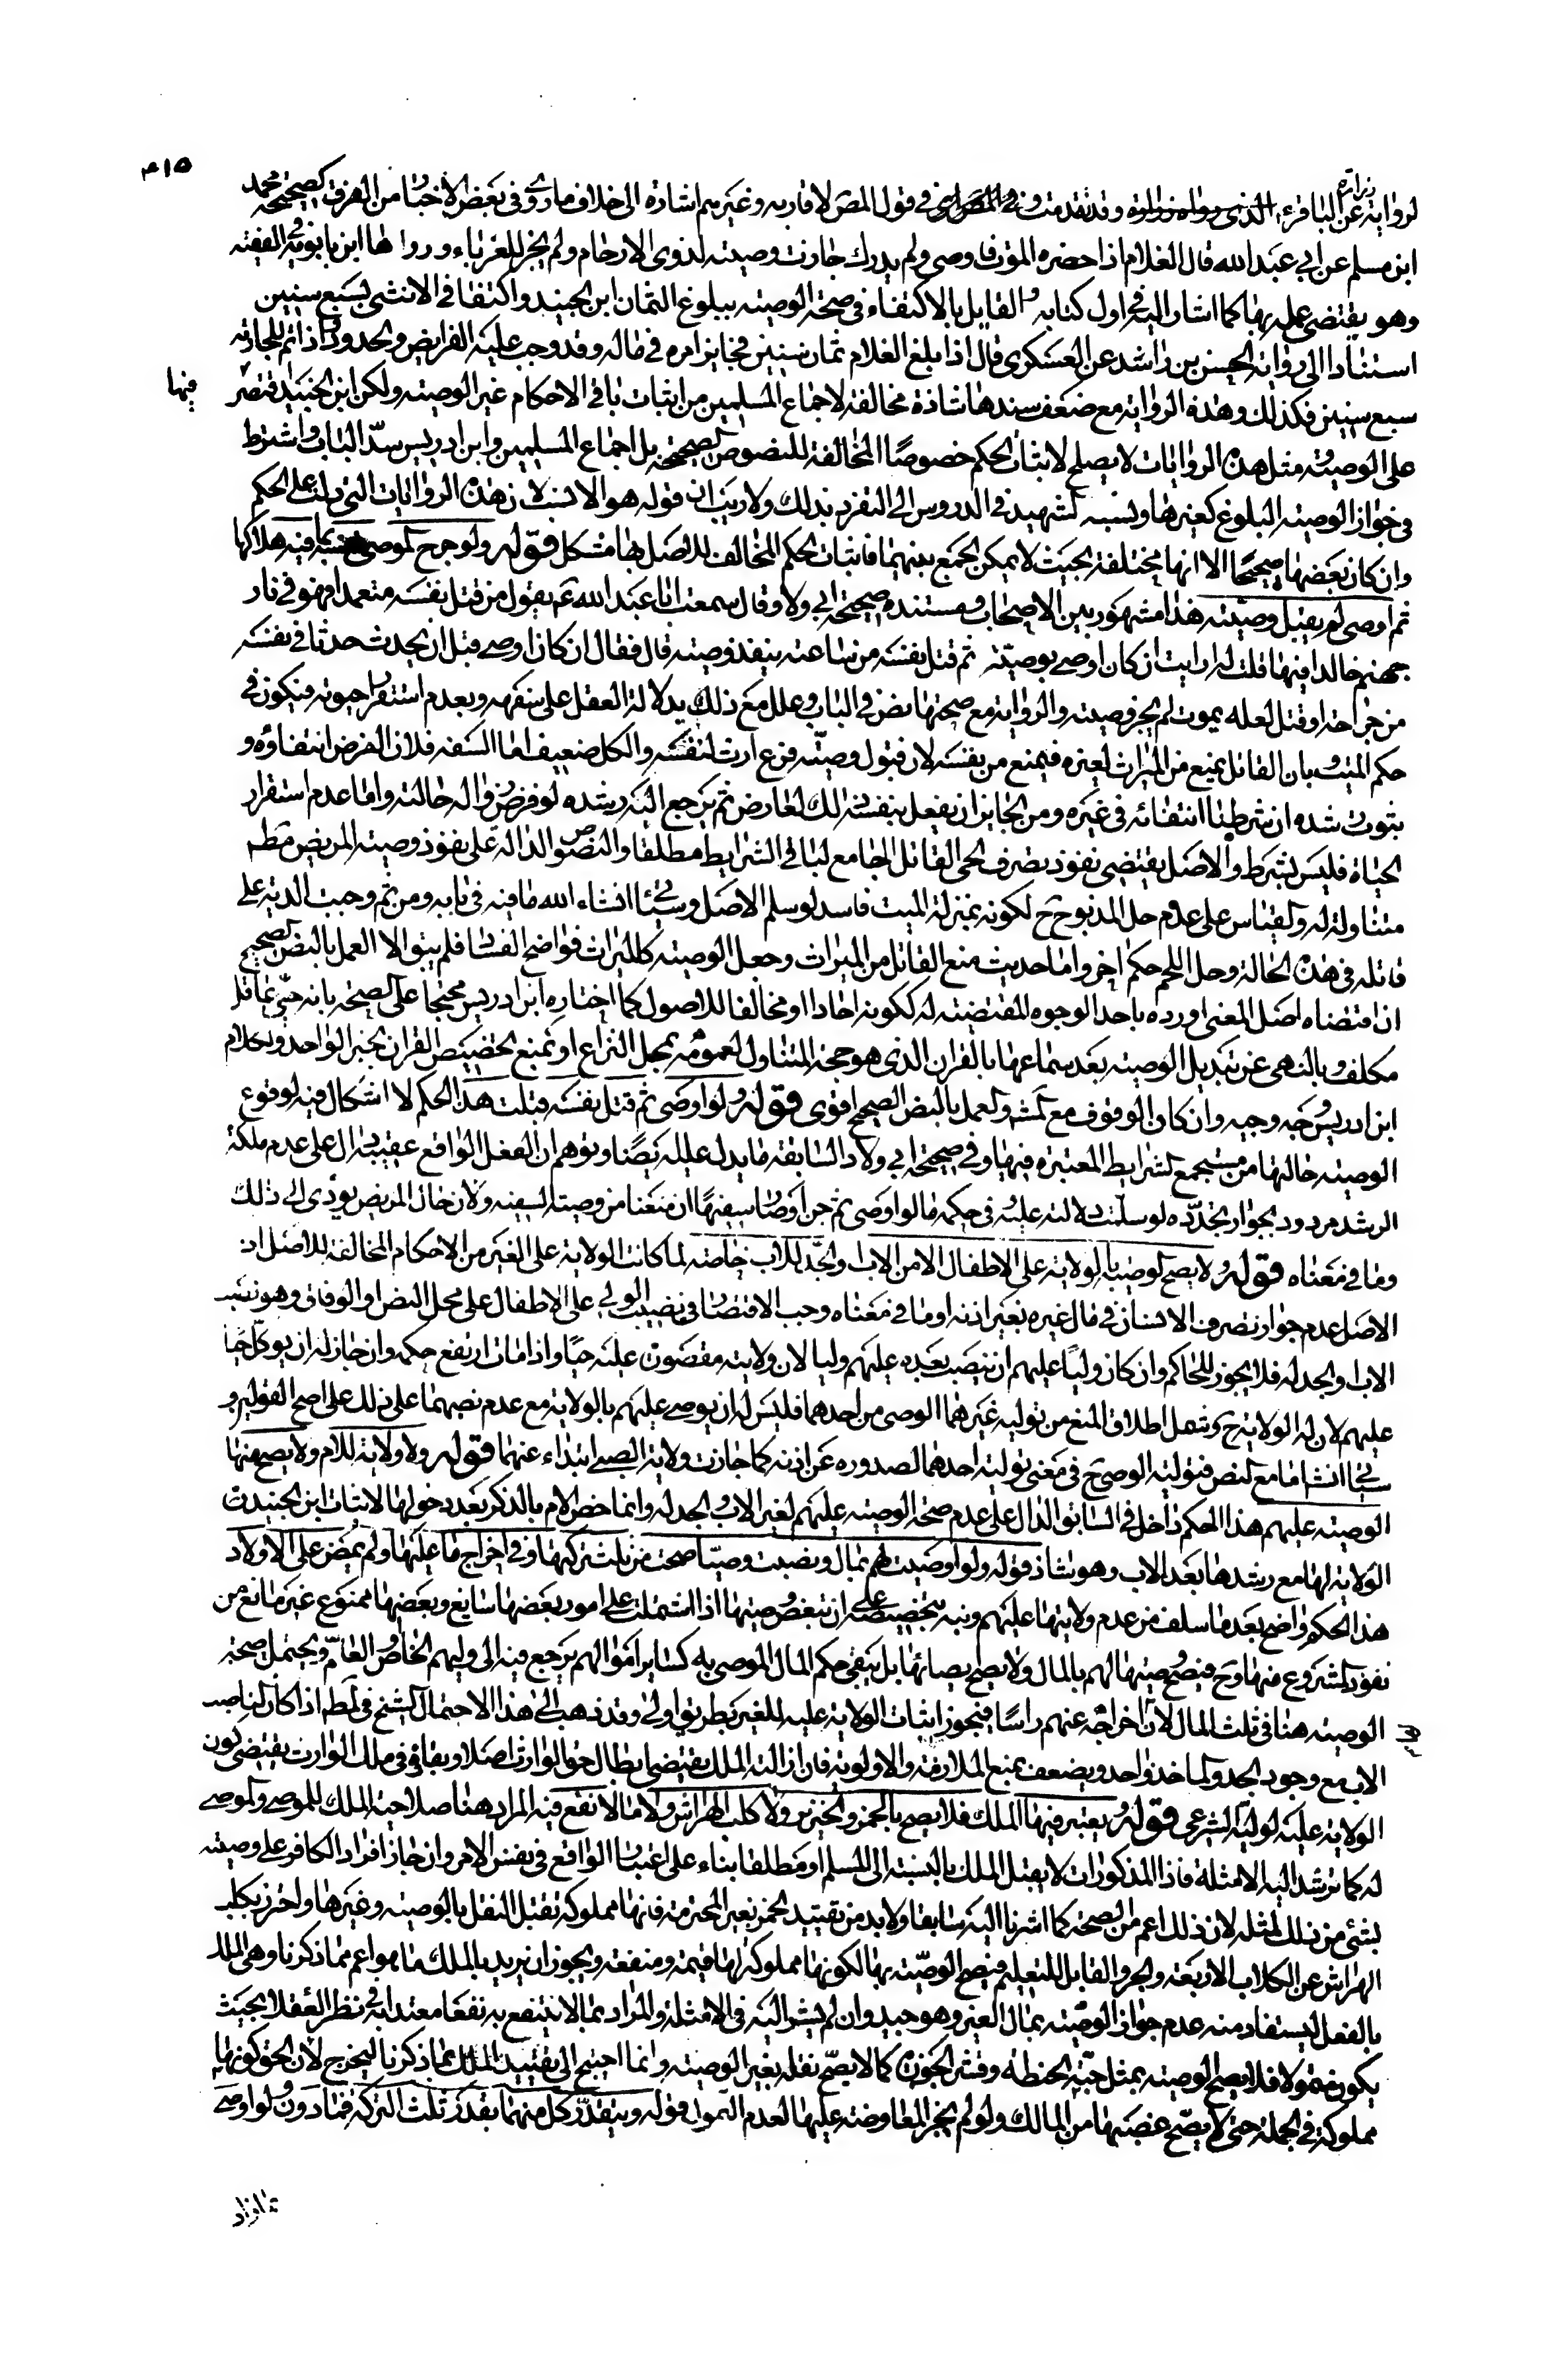 ٤١٥
زرارة
لرواية عن الباقر ع الذى رواه زرارة وقد تقدمت وفى قول المص لاقاربه وغيرهم اشارة الى خلاف ما روى فى بعض الاخبار من الفرق كصحيحة محمد
ابن مسلم عن ابى عبد الله قال الغلام اذا حضره الموت فاوصى ولم يدرك جازت وصيته لذوى الارحام ولم يجز للغرباء ورواها ابن بابويه فى الفقيه
وهو يقتضى عمله بها كما اشار اليه فى اول كتابه والقايل بالاكتفاء فى صحة الوصيته ببلوغ الثمان ابن الجنيد واكتفا فى الانثى بسبع سنين
استنادا الى رواية الحسن بن راشد عن العسكرى قال اذا بلغ الغلام ثمان سنين فجايز امره فى ماله وقد وجب عليه الفرايض والحدود واذا تم للجارية
سبع سنين فكذلك وهذه الرواية مع ضعف سندها شاذة مخالفة لاجماع المسلمين من اثبات باقى الاحكام غير الوصيته ولكن ابن الجنيد اقتصر
فيها
على الوصية ومثل هذه الروايات لا يصلح لاثبات الحكم خصوصا المخالفة للنصوص الصحيحة بل اجماع المسلمين وابن ادريس سد الباب واشترط
فى جواز الوصيته البلوغ كغيرها ونسبه الشهيد فى الدروس الى التفرد بذلك ولا ريب ان قوله هو الانسب لان هذه الروايات التى دلت على الحكم
وان كان بعضها صحيحا الا انها مختلفة بحيث لا يمكن الجمع بينهما فاثبات الحكم المخالف للاصل بها مشكل قوله ولو جرح الموصى نفسه بما فيه هلاكها
ثم اوصى لم يقبل وصيته هذا مشهور بين الاصحاب ومستنده صحيحة ابى ولاد قال سمعت ابا عبد الله ع يقول من قتل نفسه متعمدا فهو فى نار
جهنم خالدا فيها قلت له ارايت ان كان اوصى بوصية ثم قتل نفسه من ساعته ينفذ وصيته قال فقال ان كان اوصى قبل ان يحدث حدثا فى نفسه
من جراحة او قتل لعله يموت لم يجز وصيته والرواية مع صحتها نص فى الباب وعلل مع ذلك بدلالة العقل على سفهه وبعدم استقرار حيوته فيكون فى
حكم الميت وبان القاتل يمنع من الميراث لغيره فيمنع من نفسه لان قبول وصيته نوع ارث لنفسه والكل ضعيف اما السفه فلان الفرض انتفاؤه و
ثبوت رشده ان شرطنا انتفائه فى غيره ومن الجايز ان يفعل بنفسه ذلك لعارض ثم يرجع اليه رشده لو فرض زواله حالته واما عدم استقرار
الحياة فليس بشرط والاصل يقتضى نفوذ تصرف الحى القاتل الجامع لباقى الشرايط مطلقا والنصوص الدالة على نفوذ وصيته المريض مطم
متناولة له والقياس على عدم حل المذبوح ح لكونه بمنزلة الميت فاسد لو سلم الاصل وسيأتى انشاء الله ما فيه فى بابه ومن ثم وجبت الدية على
قاتله فى هذه الحالة وحل اللحم حكم اخر واما حديث منع القاتل من الميراث وجعل الوصيته كالميراث فواضح الفساد فلم يبق الا العمل بالنص الصحيح
ان اقتضاه اصل المعنى او رده باحد الوجوه المقتضيته له ككونه احادا او مخالفا للاصول كما اختاره ابن ادريس محتجا على الصحة بانه حى عاقل
مكلف وبالنهى عن تبديل الوصيته بعد سماعها بالقران الذى هو حجة المتناول لعمومه بمحل النزاع او بمنع تخصيص القران بخبر الواحد وكلام
ابن ادريس وجه وجيه وان كان الوقوف مع المشهور والعمل بالنص الصحيح اقوى قوله ولو اوصى ثم قتل نفسه قبلت هذا الحكم لا اشكال فيه لوقوع
الوصيته حالتها من مستجمع الشرايط المعتبره فيها وفى صحيحة ابى ولاد السابقة ما يدل عليه ايضا وتوهم ان الفعل الواقع عقيبه دال على عدم ملكة
الرشد مردود بجواز تجدده لو سلمت دلالته عليه فى حكمه ما لو اوصى ثم جن او صار سفيها ان منعنا من وصيته السفيه ولان حال المريض يؤدى الى ذلك
وما فى معناه قوله ولا يصح الوصيه بالولاية على الاطفال الا من الاب والجد للاب خاصة لما كانت الولاية على الغير من الاحكام المخالفة للاصل اذ
الاصل عدم جواز تصرف الانسان فى مال غيره بغير اذنه او ما فى معناه وجب الاقتصار فى نصيب الولى على الاطفال على محل النص او الوفاق وهو نصب
الاب والجد له فلا يجوز للحاكم وان كان وليا عليهم ان ينصب بعده عليهم وليا لان ولايته مقصورة عليه حيا واذا مات ارتفع حكمه وان جاز له ان يوكل حيا
عليهم لان له الولاية ح ويشمل اطلاق المنع من توليه غيرهما الوصى من احدهما فليس له ان يوصى عليهم بالولاية مع عدم نصهما على ذلك على اصح القولين و
سيأتى انشا اما مع النص فتولية الوصى ح فى معنى تولية احدهما لصدوره عن اذنه كما جازت ولاية الوصى ابتداء عنهما قوله ولا ولاية للام ولا يصح منها
الوصيته عليهم هذا الحكم داخل فى السابق الدال على عدم صحة الوصيته عليهم لغير الاب والجد له وانما خص الام بالذكر بعد دخولها لاثبات ابن الجنيد
الولاية لها مع رشدها بعد الاب وهو شاذ قوله ولو اوصيت لهم بمال ونصبت وصيا صحت من ثلث تركتها وفى اخراج ما عليها ولم يمض على الاولاد
هذا الحكم واضح بعد ما سلف من عدم ولايتها عليهم ونبه بتخصيصه على ان تبعض وصيتها اذا اشتملت على امور بعضها سايغ وبعضها ممنوع غير مانع من
نفوذ المشروع منها وح فيصح وصيتها لهم بالمال ولا يصح ايصائها بل يبقى حكم المال الموصى به كساير اموالهم يرجع فيه الى وليهم الخاص او العام ويحتمل صحة
الوصيته هنا فى ثلث المال لان اخراجه عنهم راسا فيجوز اثبات الولاية عليه للغير بطريق اولى وقد ذهب الى هذا الاحتمال الشيخ فى المبسوط اذا كان الناصب
الاب مع وجود الجد والماخذ واحد ويضعف بمنع الملازمة والاولوية فان ازالة الملك يقتضى ابطال حق الوارث اصلا وبقاؤه فى ملك الوارث يقتضى كون
الولاية عليه لوليه الشرعى قوله ويعتبر فيها الملك فلا يصح بالخمر والخنزير ولا كلب الهراش ولا ما لا نفع فيه المراد هنا صلاحية الملك للموصى والموصى
له كما يرشد اليه الامثلة فان المذكورات لا يقبل الملك بالنسبة الى المسلم او مطلقا بناء على اعتبار الواقع فى نفس الامر وان جاز اقرار الكافر على وصيته
بشئ من ذلك لمثله لان ذلك اعم من الصحة كما اشرنا اليه سابقا ولا بد من تقييد الخمر بغير المحترمة فانها مملوكة تقبل النقل بالوصيته وغيرها واحترز بكلب
الهراش عن الكلاب الاربعة والجرو القابل للتعليم فيصح الوصية بها لكونها مملوكة لها قيمة ومنفعة ويجوز ان يريد بالملك ما هو اعم مما ذكرنا وهى الملك
بالفعل ليستفاد منه عدم جواز الوصية بمال الغير وهو جيد وان لم يشر اليه فى الامثلة والمراد بما لا ينتفع به نفعا معتدا به فى نظر العقلا بحيث
يكون متمولا فلا يصح الوصيته بمثل حبة الحنطة وقشر الجوزة كما لا يصح نقله بغير الوصيته وانما احتيج الى تقييد الملك بما ذكرنا ليخرج لان الحق كونها
مملوكة فى الجملة حتى لا يصح غصبها من المالك ولو لم يجز المعاوضة عليها لعدم التمول قوله ويتقدر كل منهما بقدر ثلث التركة فما دون ولو اوصى
بما زاد